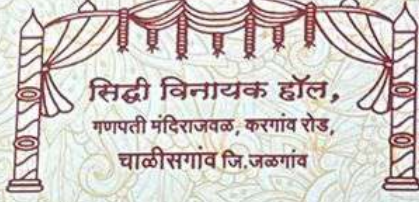 सिद्धी विनायक हॉल,
गणपती मंदिराजवळ, करगांव रोड,
चाळीसगांव जि.जळगांव